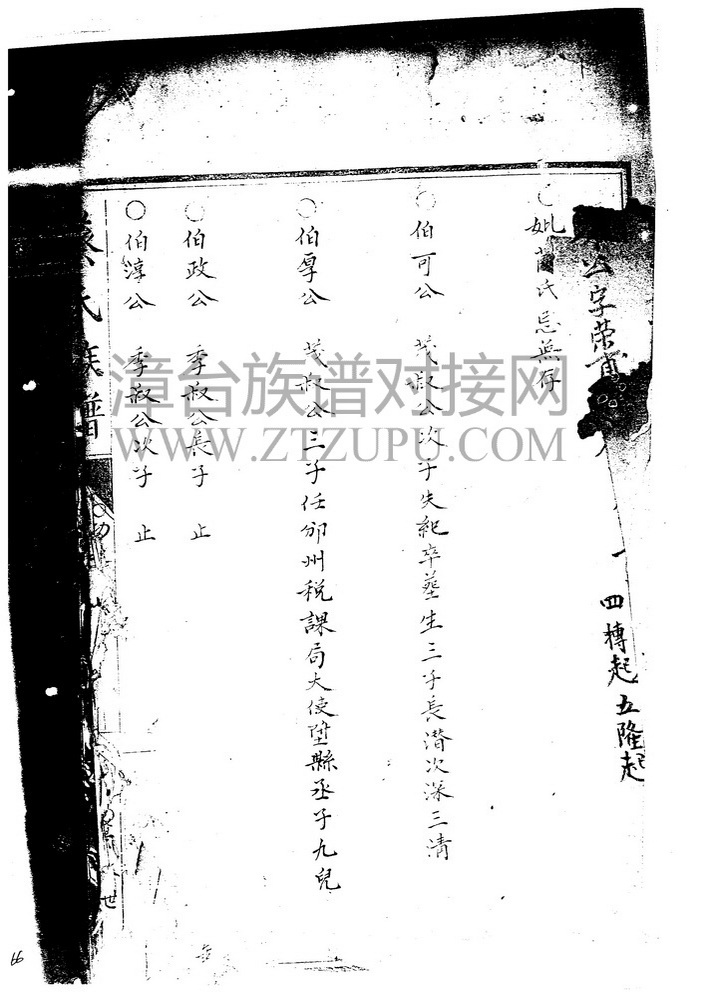 公字荣
四摶起五隆起
妣蕳氏忌無存
○伯可公 茂叔公次子失紀卒塟生三子長潛次深三清
○伯厚公 茂叔公三子任邠州税課局大使堕縣丞子九兒
○伯政公 季叔公長子 止
○伯淳公 季叔公次子 止
氏族譜
世
漳台族谱对接网
WWW.ZTZUPU.COM
66